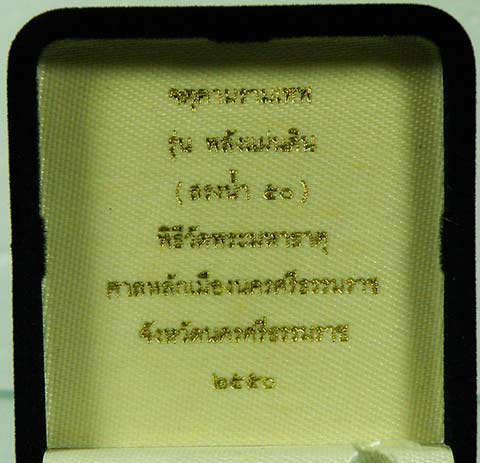 จตุคามรามเทพ
รุ่น พลังแผ่นดิน
(สรงน้ำ ๕๐)
พิธีวัดพระมหาธาตุ
ศาลหลักเมืองนครศรีธรรมราช
จังหวัดนครศรีธรรมราช
๒๕๕๐